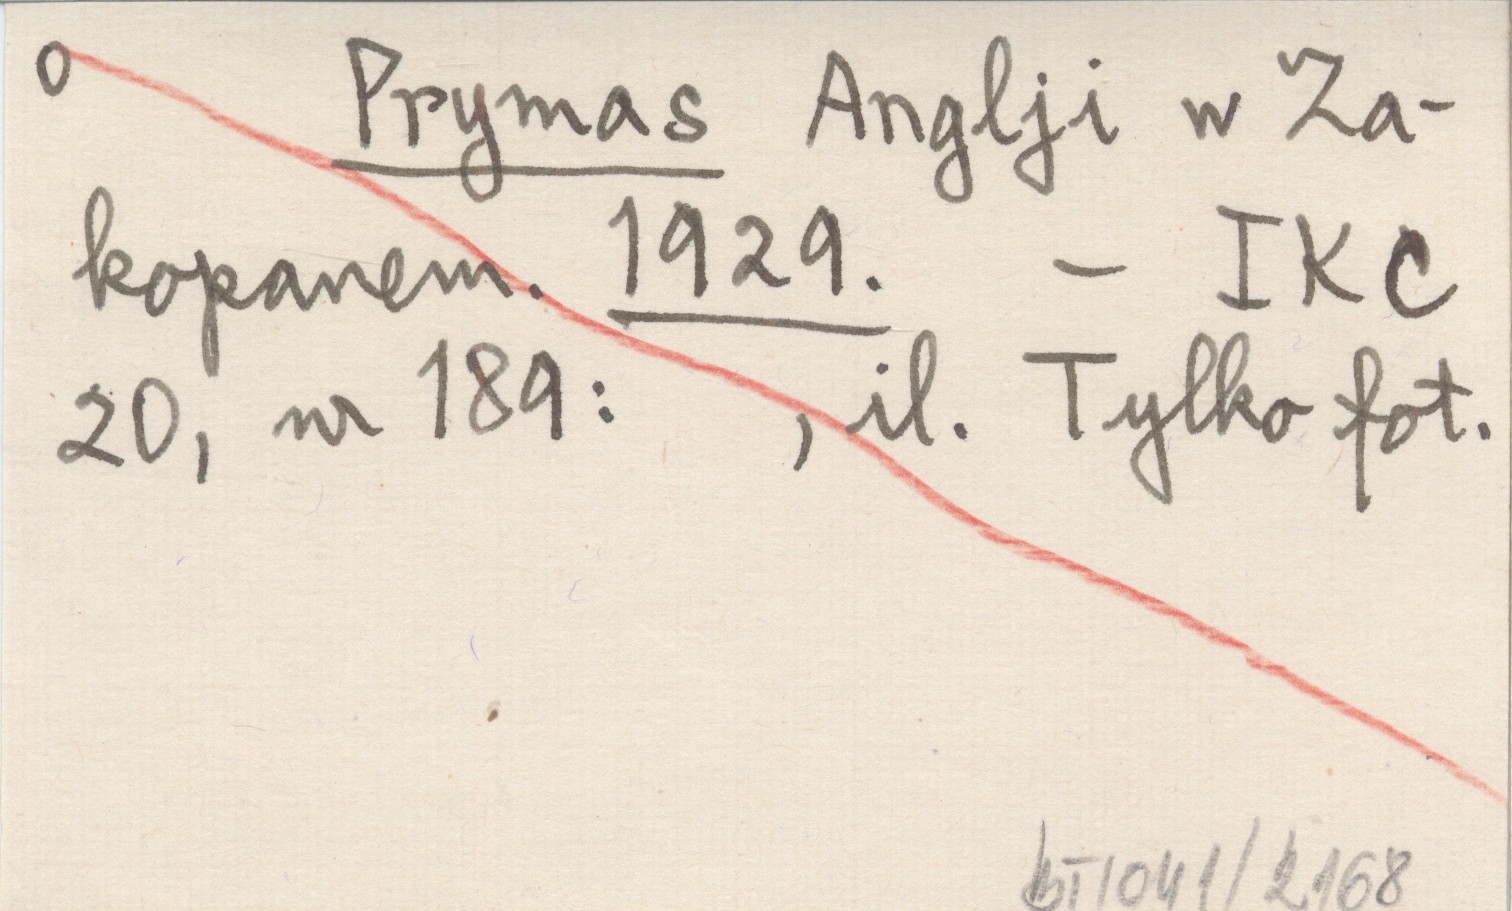 O Prymas Anglji w Za-
kopanem. 1929. - IKC
20, nr 189: , il. Tylko fot.
bT1041/2168